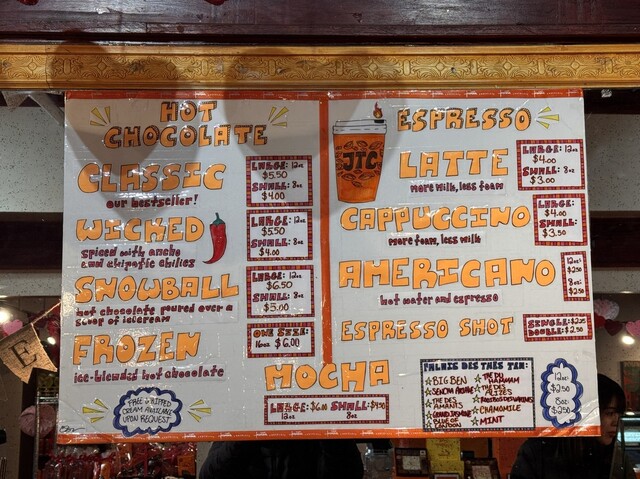 HOT
CHOCOLATE
CLASSIC
our bestseller!
LARGE: 12oz
$5.50
SMALL: 8oz
$4.00
WICKED
spiced with ancho
and chipotle chilies
LARGE: 12oz
$5.50
SMALL: 8oz
$4.00
SNOWBALL
hot chocolate poured over a
scoop of icecream
LARGE: 12oz
$6.50
SMALL: 8oz
$5.00
FROZEN
ice-blended hot chocolate
ONE SIZE:
16oz $6.00
FREE WHIPPED
CREAM AVAILABLE
UPON REQUEST
MOCHA
LARGE: $6.00 SMALL:
12oz 8oz
JTC
ESPRESSO
LATTE
more milk, less foam
LARGE: 12oz
$4.00
SMALL: 8oz
$3.00
CAPPUCCINO
more foam, less milk
LARGE:
$4.00
SMALL:
$3.50
AMERICANO
hot water and espresso
12oz
$2.50
8oz:
$2.50
ESPRESSO SHOT
SINGLE: $2.25
DOUBLE: $2.50
PALAIS DES THÉS TEA:
BIG BEN
THÉ DES
AMANTS
THÉ DU
HAMMAM
THÉ DES
ALIZÉS
CHAMOMILE
MINT
12oz:
$2.50
8oz:
$2.50
E